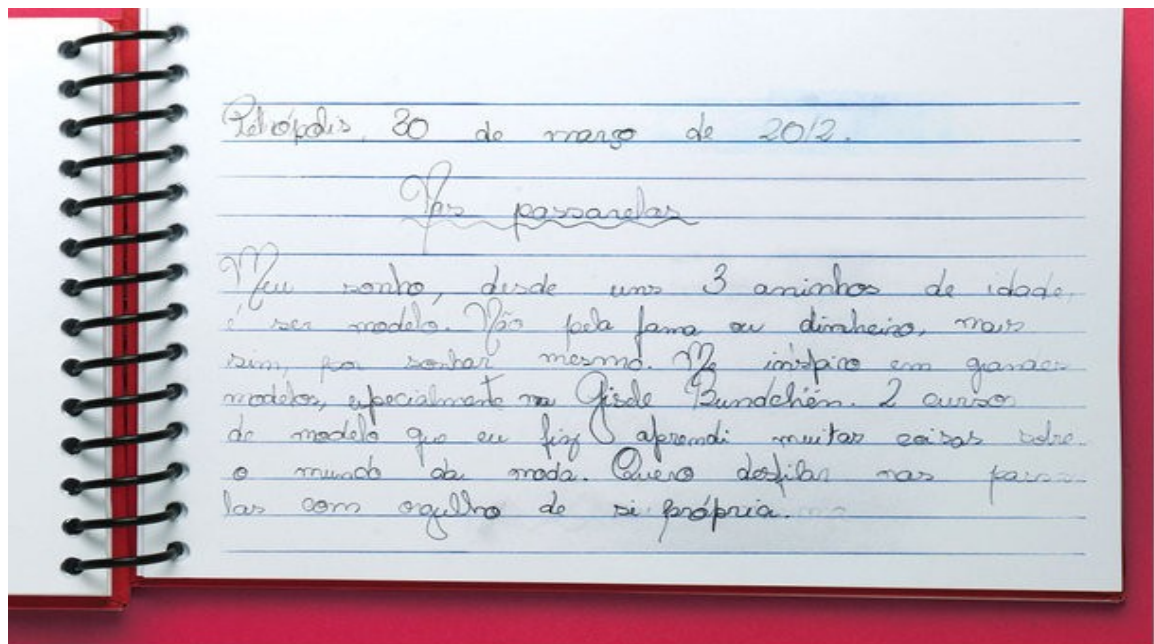 Petrópolis, 30 de março de 2012.
Nas passarelas
Meu sonho, desde uns 3 aninhos de idade,
é ser modelo. Não pela fama ou dinheiro, mais
sim, por sonhar mesmo. Me inspiro em
modelos, especialmente na Gisele Bundchën. 2 cursos
de modelo que eu fiz aprendi muitas coisas sobre
o mundo da moda. Quero desfilar nas
las com orgulho de si própria.